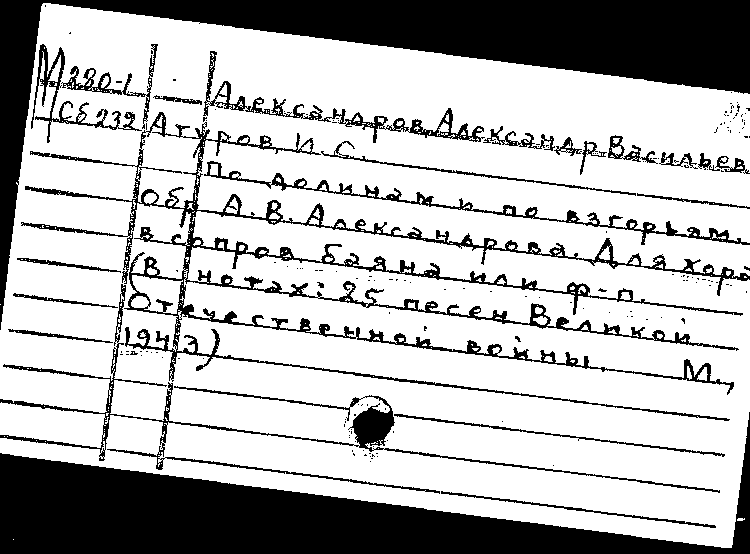 М 280-1 Александров, Александр Васильев
Сб 232 Атуров, И. С.
По долинам и по взгорьям.
Обр. А. В. Александрова. Для хора
в сопров. баяна или ф-п.
(В нотах: 25 песен Великой
Отечественной войны. М.,
1943)